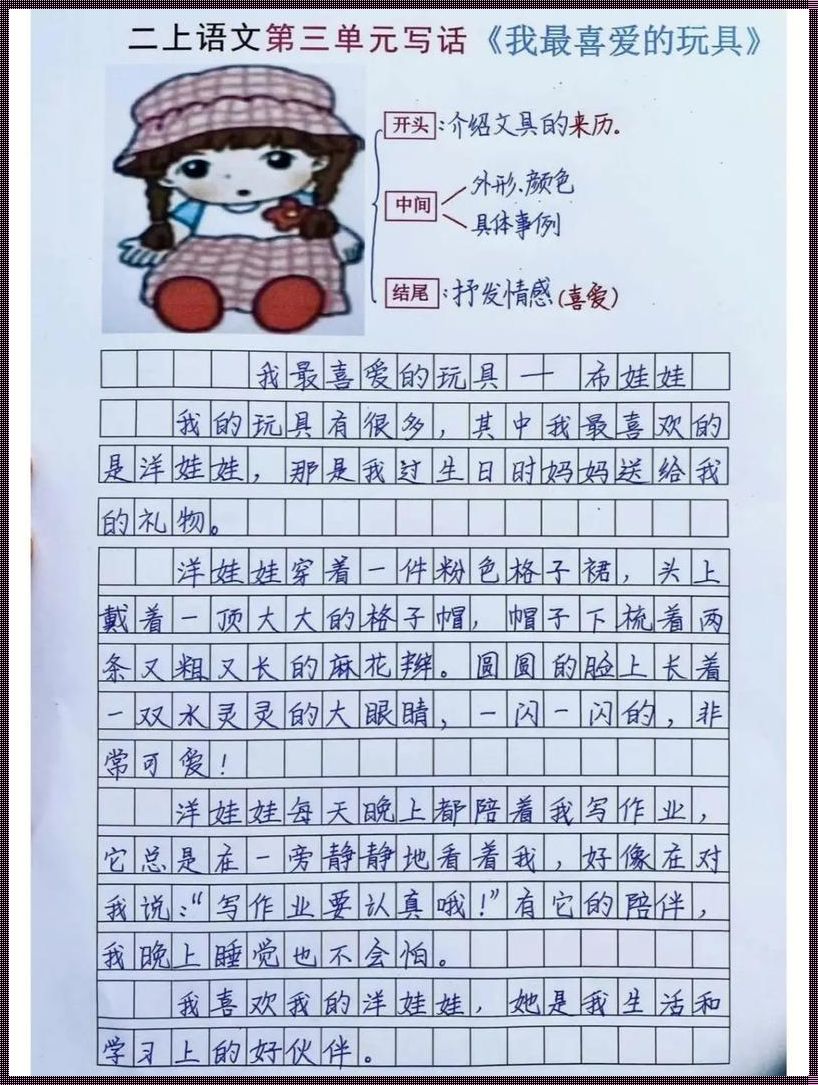 二上语文第三单元写话《我最喜爱的玩具》
开头:介绍文具的来历。
中间
外形、颜色
具体事例
结尾:抒发情感(喜爱)
我最喜爱的玩具一布娃娃
我的玩具有很多，其中我最喜欢的
是洋娃娃，那是我过生日时妈妈送给我
的礼物。
洋娃娃穿着一件粉色格子裙，头上
戴着一顶大大的格子帽，帽子下梳着两
条又粗又长的麻花辫。圆圆的脸上长着
一双水灵灵的大眼睛，一闪一闪的，非
常可爱！
洋娃娃每天晚上都陪着我写作业，
它总是在一旁静静地看着我，好像在对
我说：“写作业要认真哦！”有它的陪伴，
我晚上睡觉也不会怕。
我喜欢我的洋娃娃，她是我生活和
学习上的好伙伴。